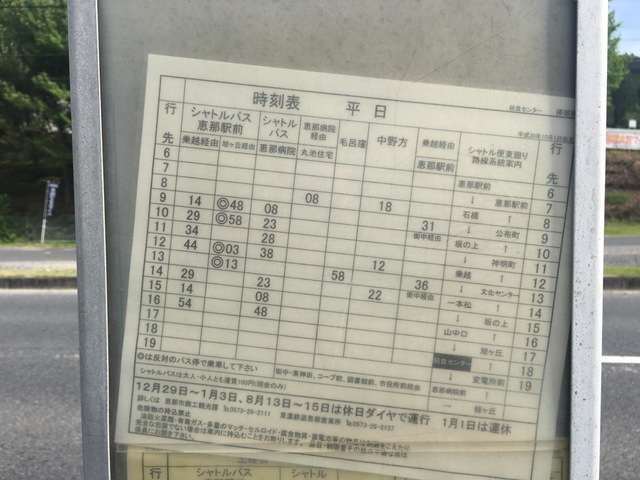 時刻表 平日
給食センター
行先 シャトルバス恵那駅前 シャトルバス 恵那病院経由 毛呂窪 中野方 乗越経由 シャトル便東廻り路線系統案内 行先
乗越経由 旭ヶ丘経由 恵那病院 丸池住宅 恵那駅前
6 恵那駅前 6
7 ↓ 恵那駅前 7
8 08 石橋 ↑ 8
9 14 ◎48 08 18 ↓ 公布町 9
10 29 ◎58 23 31 街中経由 坂の上 ↑ 10
11 34 28 ↓ 神明町 11
12 44 ◎03 38 12 乗越 ↑ 12
13 ◎13 58 36 街中経由 ↓ 文化センター 13
14 29 23 22 一本松 ↑ 14
15 14 08 ↓ 坂の上 15
16 54 48 山中口 ↑ 16
17 ↓ 旭ヶ丘 17
18 給食センター ↑ 18
19 ↓ 変電所前 19
恵那病院前 ↑
→ 旭ヶ丘
◎は反対のバス停で乗車して下さい
街中=東神田、コープ前、図書館前、市役所前経由
シャトルバスは大人・小人とも運賃100円(現金のみ)
12月29日~1月3日、8月13日~15日は休日ダイヤで運行 1月1日は運休
詳しくは 恵那市商工観光課 ℡0573-26-2111 東濃鉄道恵那営業所
危険物の持込禁止
時刻表
行 シャトルバス シャトル